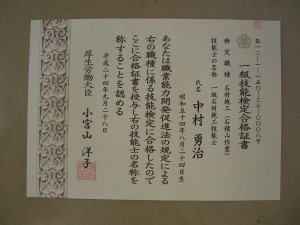 一級技能検定合格証書
検定職種 石材施工(石積み作業)
技能士の名称 一級石材施工技能士
氏名 中村 勇治
昭和五十四年八月二十四日生
あなたは職業能力開発促進法の規定による
右の職種に係る技能検定に合格したので
ここに合格証書を授与し右の技能士の名称を
称することを認める
平成二十四年九月二十八日
厚生労働大臣 小宮山 洋子